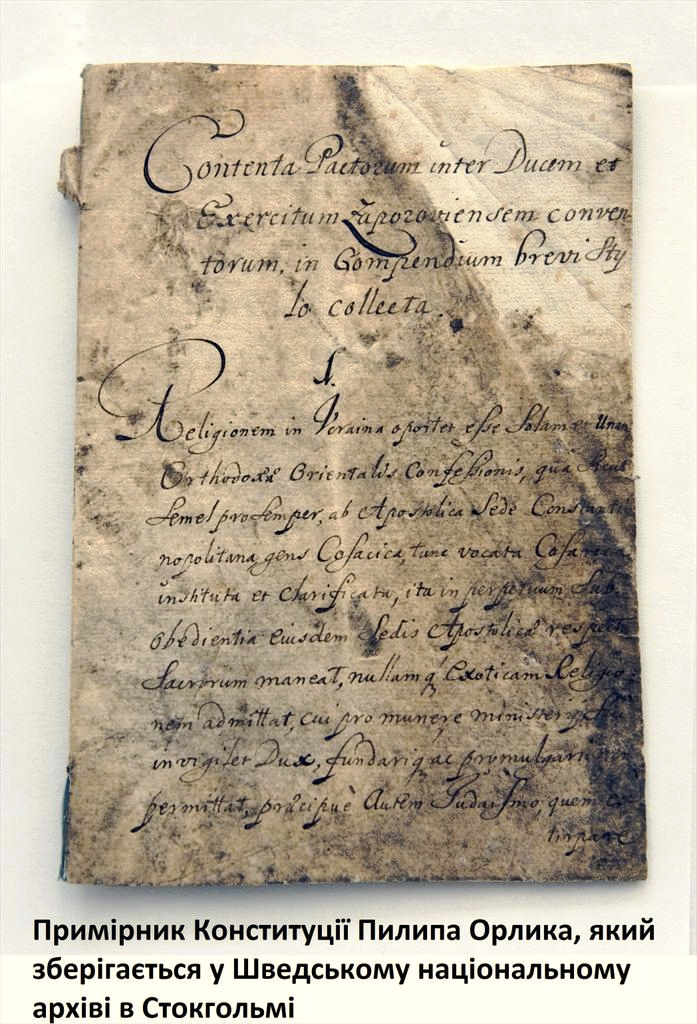 Contenta Pactorum inter Ducem et
Exercitum Zaporoviensem conven
torum, in Compendium brevi Sty
lo collecta.
1.
Religionem in Vcraina oportet esse Solam et Unam
Orthodoxæ Orientalis Confessionis, quâ Sicut
semel pro semper, ab Apostolica Sede Constanti
nopolitana, gens Cosacica, tunc vocata
instituta et clarificata, ita in perpetuum Sub
obedientia eiusdem Sedis Apostolicæ respectu
Sacrorum maneat, nullamq́ Exoticam Religio
nem admittat, cui pro munere ministerij
invigilet Dux, fundariq́ ac promulgari non
permittat, præcipuè autem Judaismo, quem ex
tirpare
Примірник Конституції Пилипа Орлика, який
зберігається у Шведському національному
архіві в Стокгольмі